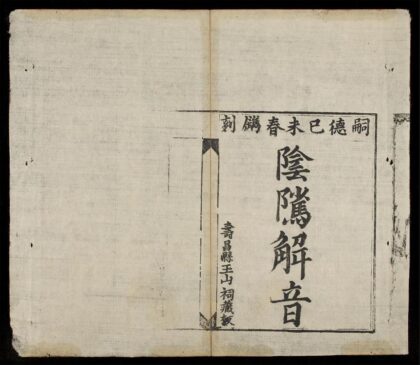 嗣德己未春鐫刻
陰隲解音
壽昌縣玉山祠藏板